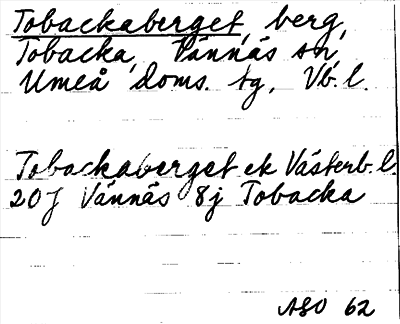 Tobackaberget, berg,
Tobacka, Vännäs sn,
Umeå doms. tg, Vb. l.
Tobackaberget ek Västerb. l.
20J Vännäs 8j Tobacka
ASO 62